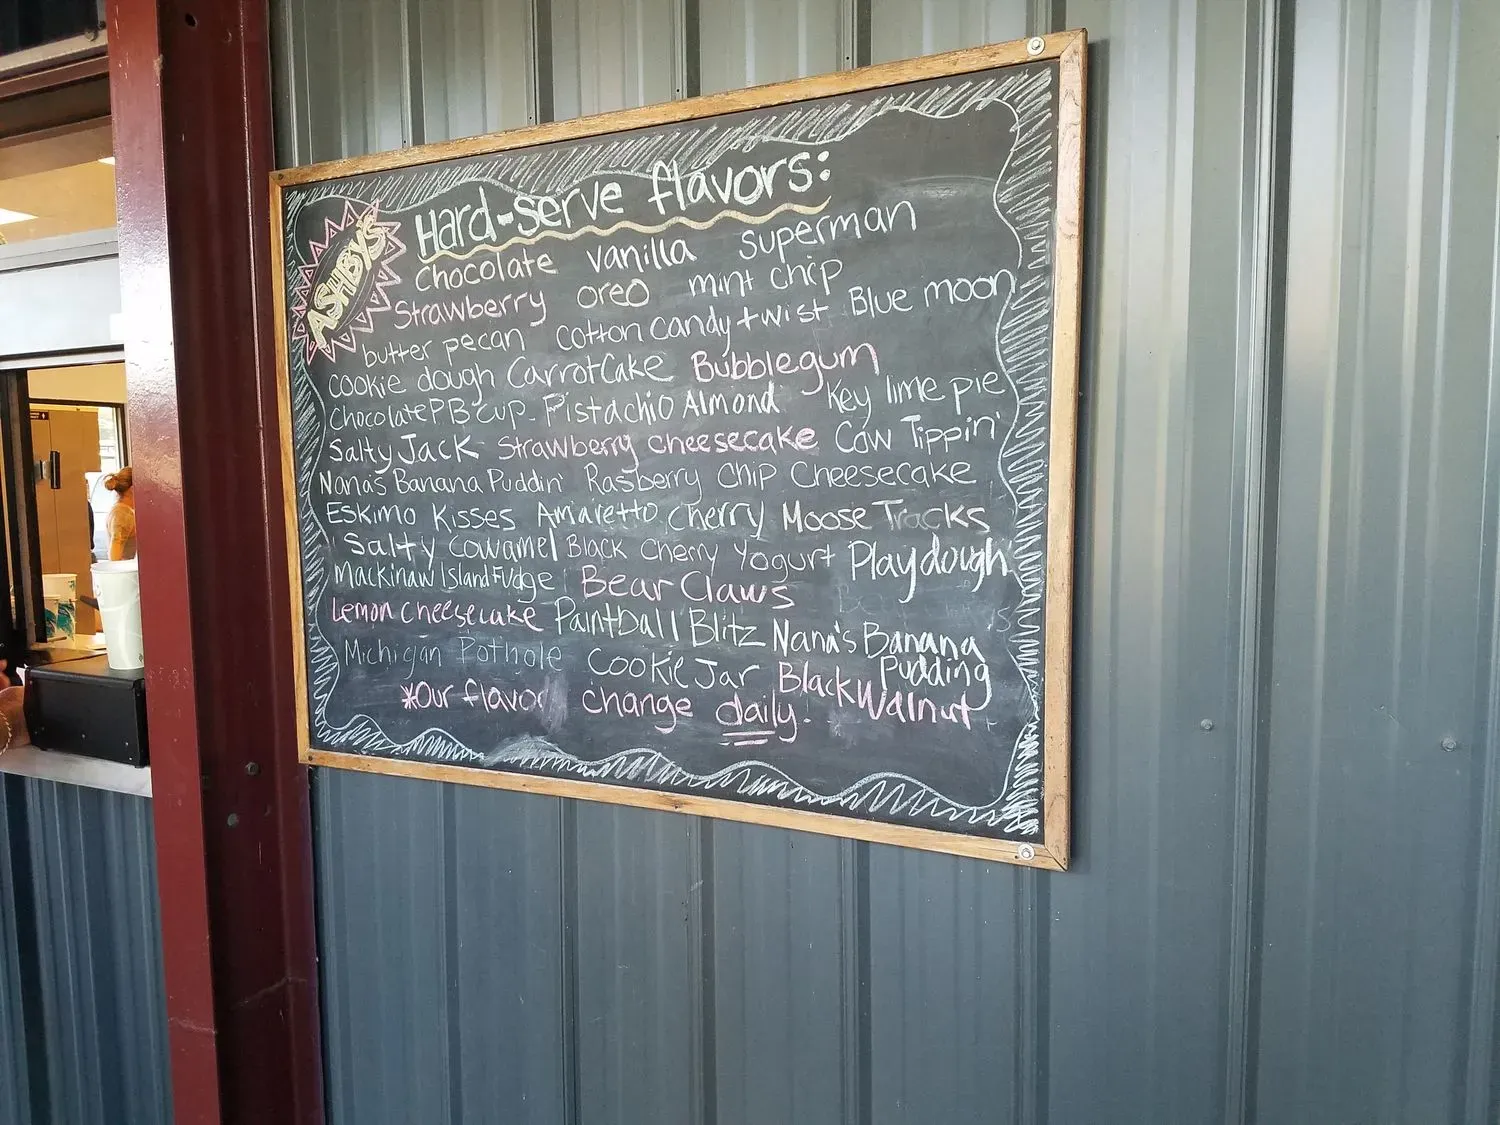 ASHBY'S
Hard-serve flavors:
chocolate vanilla superman
Strawberry oreo mint chip
butter pecan cotton candy twist Blue moon
cookie dough CarrotCake Bubblegum
Chocolate PB cup - Pistachio Almond Key lime pie
Salty Jack Strawberry cheesecake Cow Tippin'
Nana's Banana Puddin' Rasberry Chip Cheesecake
Eskimo Kisses Amaretto Cherry Moose Tracks
Salty cawamel Black Cherry Yogurt Playdough
Mackinaw Island Fudge Bear Claws
Lemon cheesecake Paintball Blitz Nana's Banana Pudding
Michigan Pothole Cookie Jar Black Walnut
*Our flavor change daily.